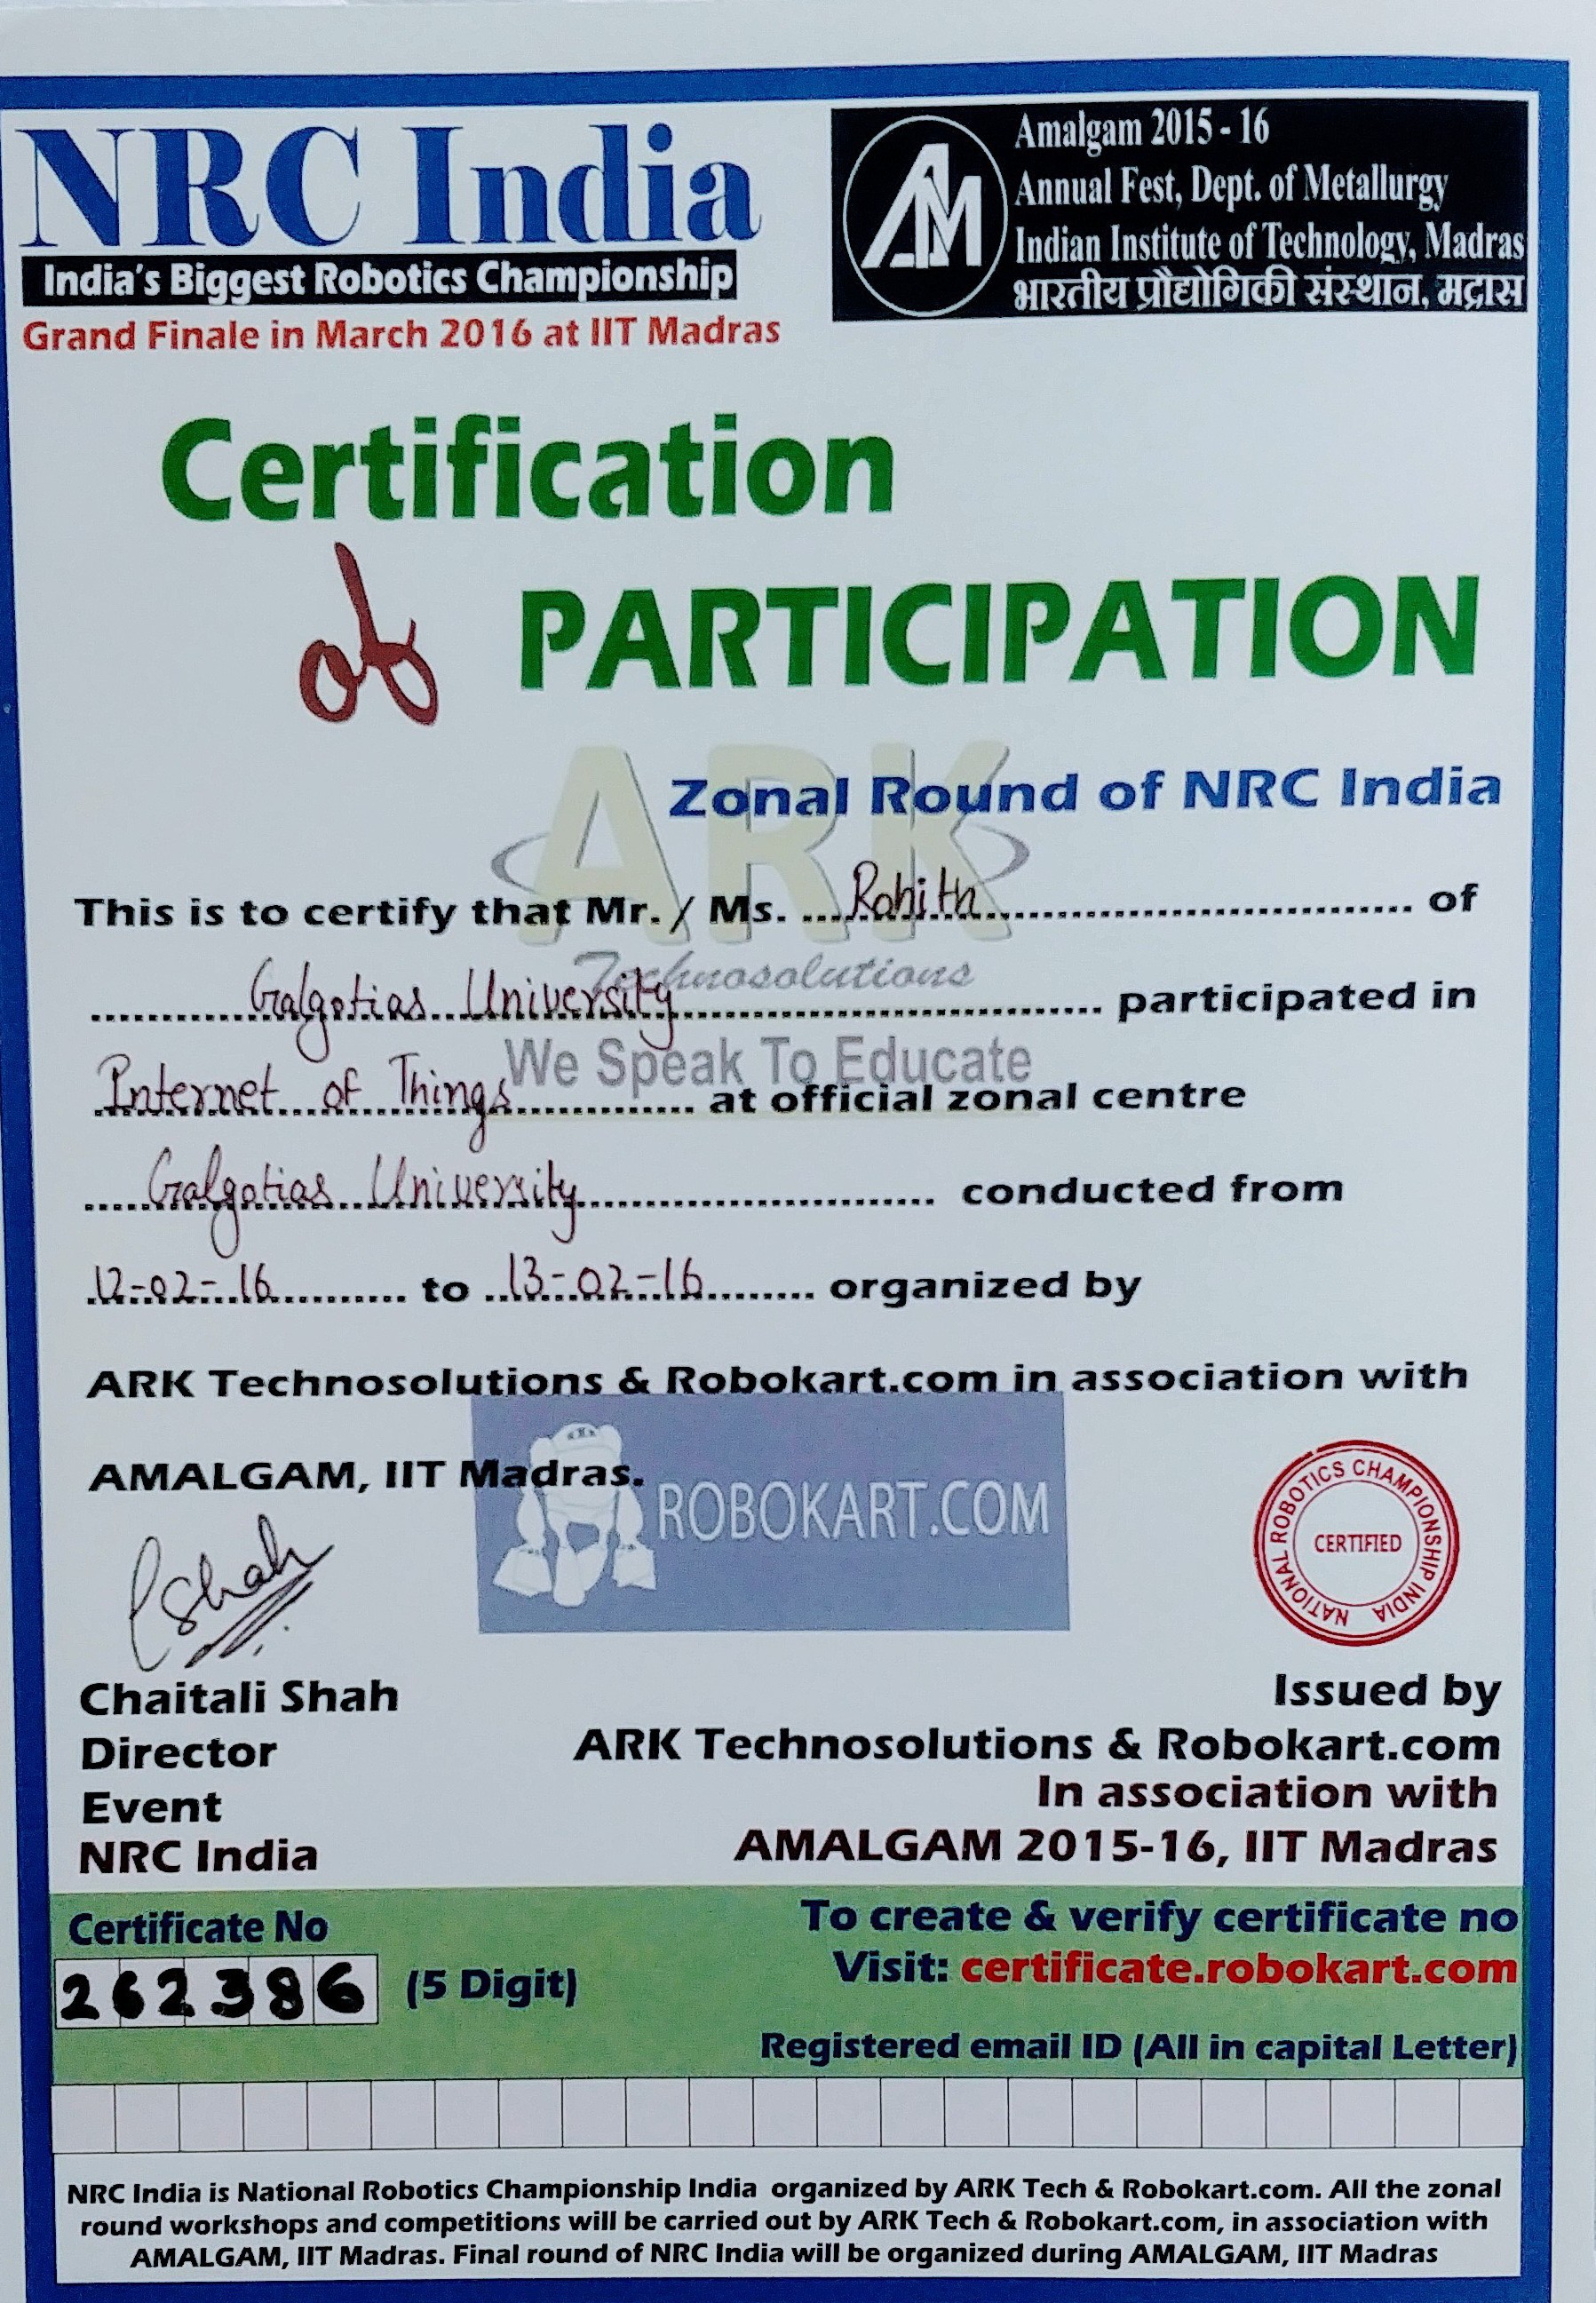 NRC India
India's Biggest Robotics Championship
Grand Finale in March 2016 at IIT Madras
AM
Amalgam 2015 - 16
Annual Fest, Dept. of Metallurgy
Indian Institute of Technology, Madras
भारतीय प्रौद्योगिकी संस्थान, मद्रास
Certification
of PARTICIPATION
ARK
Zonal Round of NRC India
This is to certify that Mr. / Ms. ....Rohith.................................... of
Technosolutions
............Galgotias University.................................... participated in
We Speak To Educate
Internet of Things............... at official zonal centre
....Galgotias University............................ conducted from
12-02-16.......... to ..13-02-16........ organized by
ARK Technosolutions & Robokart.com in association with
AMALGAM, IIT Madras.
ROBOKART.COM
NATIONAL ROBOTICS CHAMPIONSHIP INDIA
CERTIFIED
CShah
Chaitali Shah
Director
Event
NRC India
Issued by
ARK Technosolutions & Robokart.com
In association with
AMALGAM 2015-16, IIT Madras
Certificate No
262386 (5 Digit)
To create & verify certificate no
Visit: certificate.robokart.com
Registered email ID (All in capital Letter)
NRC India is National Robotics Championship India organized by ARK Tech & Robokart.com. All the zonal
round workshops and competitions will be carried out by ARK Tech & Robokart.com, in association with
AMALGAM, IIT Madras. Final round of NRC India will be organized during AMALGAM, IIT Madras